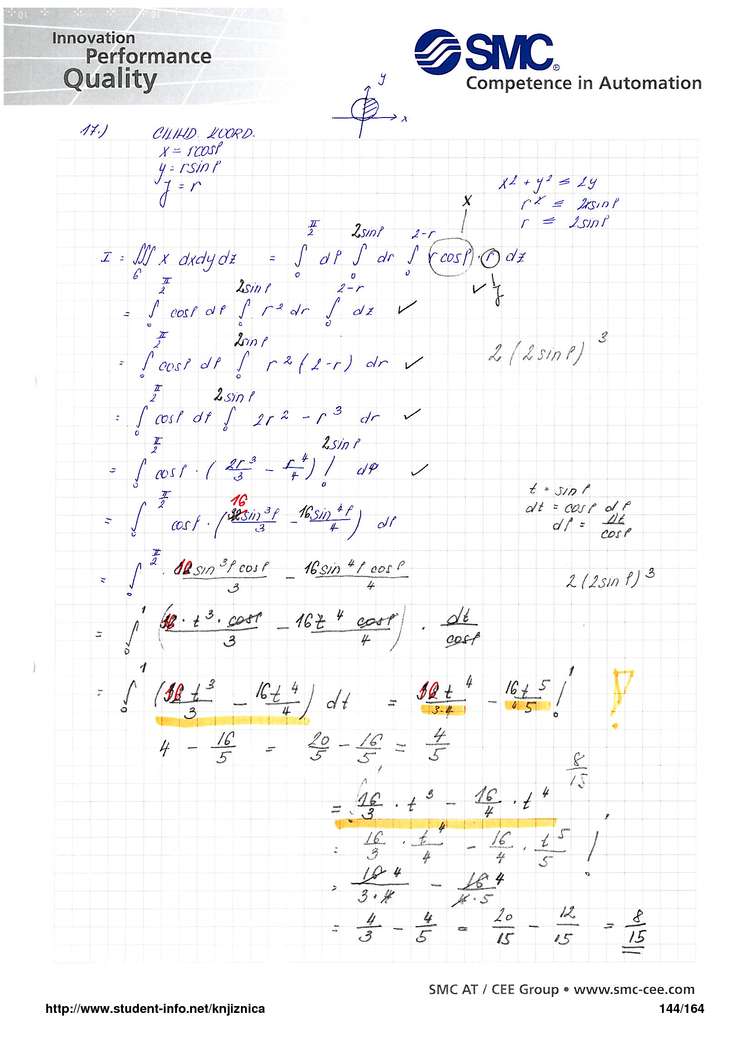 Innovation
Performance
Quality
SMC
Competence in Automation
17.) CILIND. KOORD.
x = r cosφ
y = r sinφ
J = r
y
x
x² + y² ≤ 2y
r² ≤ 2r sinφ
r ≤ 2sinφ
x
I = ∭_G x dxdydz = ∫_0^{π/2} dφ ∫_0^{2sinφ} dr ∫_0^{2-r} r cosφ · r dz
J
= ∫_0^{π/2} cosφ dφ ∫_0^{2sinφ} r² dr ∫_0^{2-r} dz ✓
= ∫_0^{π/2} cosφ dφ ∫_0^{2sinφ} r² (2-r) dr ✓
2(2sinφ)³
= ∫_0^{π/2} cosφ dφ ∫_0^{2sinφ} 2r² - r³ dr ✓
= ∫_0^{π/2} cosφ · (2r³/3 - r⁴/4) |_0^{2sinφ} dφ ✓
= ∫_0^{π/2} cosφ · (16 sin³φ/3 - 16 sin⁴φ/4) dφ
t = sinφ
dt = cosφ dφ
dφ = dt/cosφ
= ∫_0^{π/2} 16 sin³φ cosφ/3 - 16 sin⁴φ cosφ/4
2(2sinφ)³
= ∫_0^1 (16 · t³ · cosφ/3 - 16t⁴ cosφ/4) · dt/cosφ
= ∫_0^1 (16t³/3 - 16t⁴/4) dt = 16t⁴/3·4 - 16t⁵/4·5 |_0^1 !
4 - 16/5 = 20/5 - 16/5 = 4/5
8/15
= 16/3 · t³ - 16/4 · t⁴
= 16/3 · t⁴/4 - 16/4 · t⁵/5 |_0^1
= 16 4/3·4 - 16 4/4·5
= 4/3 - 4/5 = 20/15 - 12/15 = 8/15
SMC AT / CEE Group • www.smc-cee.com
http://www.student-info.net/knjiznica 144/164